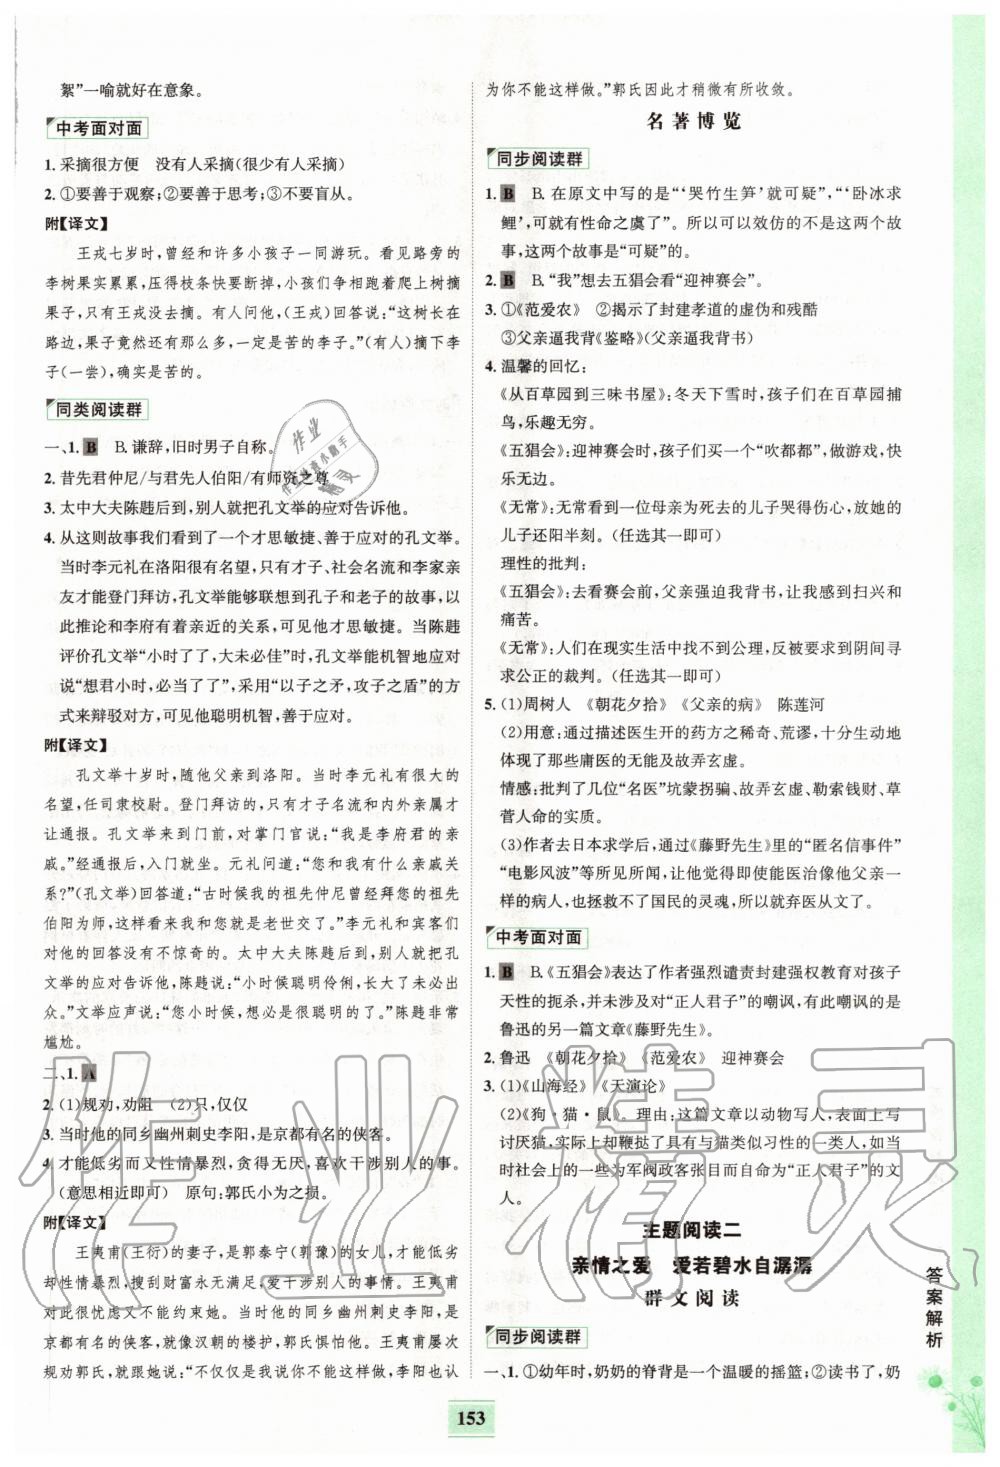 絮”一喻就好在意象。
中考面对面
1. 采摘很方便　没有人采摘(很少有人采摘)
2. ①要善于观察;②要善于思考;③不盲从。
附【译文】
王戎七岁时,曾经和许多小孩子一同游玩。看见路旁的
李树果实累累,压得枝条快要断掉,小孩们争着抢着爬上树摘
果子,只有王戎没去摘。有人问他,(王戎)回答说:“这树长在
路边,果子竟然还有那么多,一定是苦的李子。”(有人)摘下李
子(一尝),确实是苦的。
同类阅读群
一、1. B　B. 谦辞,旧时男子自称。
2. 昔先君仲尼/与君先人伯阳/有师资之尊
3. 太中大夫陈韪后到,别人就把孔文举的应对告诉他。
4. 从这则故事我们看到了一个才思敏捷、善于应对的孔文举。
当时李元礼在洛阳很有名望,只有才子、社会名流和李家亲
友才能登门拜访,孔文举能够联想到孔子和老子的故事,以
此推论和李府有着亲近的关系,可见他才思敏捷。当陈韪
评价孔文举“小时了了,大未必佳”时,孔文举能机智地应对
说“想君小时,必当了了”,采用“以子之矛,攻子之盾”的方
式来辩驳对方,可见他聪明机智,善于应对。
附【译文】
孔文举十岁时,随他父亲到洛阳。当时李元礼有很大的
名望,任司隶校尉。登门拜访的,只有才子名流和内外亲属才
让通报。孔文举来到门前,对掌门官说:“我是李府君的亲
戚。”经通报后,入门就坐。元礼问道:“您和我有什么亲戚关
系?”(孔文举)回答道:“古时候我的祖先仲尼曾经拜您的祖先
伯阳为师,这样看来,我和您就是老世交了。”李元礼和宾客们
对他的回答没有不惊奇的。太中大夫陈韪后到,别人就把孔文
举的应对告诉他,陈韪说:“小时候聪明伶俐,长大了未必出
众。”文举应声说:“您小时候,想必是很聪明的了。”陈韪非常
尴尬。
二、1. A
2. (1)规劝,劝阻　(2)只,仅仅
3. 当时他的同乡幽州刺史李阳,是京都有名的侠客。
4. 才能低劣而又性情暴烈,贪得无厌,喜欢干涉别人的事。
(意思相近即可)　原句:郭氏小为之损。
附【译文】
王夷甫(王衍)的妻子,是郭泰宁(郭豫)的女儿,才能低劣
却性情暴烈,搜刮财富永无满足,喜欢干涉别人的事情。王夷
甫对此感到忧虑却不能约束她。当时他的同乡幽州刺史李阳,是
京都有名的侠客,就像汉朝的楼护,郭氏惧怕他。王夷甫屡次
规劝郭氏,就对她说:“不仅仅是我说你不能这样做,李阳也认
为你不能这样做。”郭氏因此才稍微有所收敛。
名著博览
同步阅读群
1. B　B. 在原文中写的是“‘哭竹生笋’就可疑”,“‘卧冰求
鲤’,可就有性命之虞了”。所以可以效仿的不是这两个故
事,这两个故事是“可疑”的。
2. B　B. “我”想去五猖会看“迎神赛会”。
3. ①《范爱农》　②揭示了封建孝道的虚伪和残酷
③父亲逼我背《鉴略》(父亲逼我背书)
4. 温馨的回忆:
《从百草园到三味书屋》:冬天下雪时,孩子们在百草园捕
鸟,乐趣无穷。
《五猖会》:迎神赛会时,孩子们买一个“吹都都”,吹吹,快
乐无边。
《无常》:无常看到一位母亲为死去的儿子哭得伤心,放她的
儿子还阳半刻。(任选其一即可)
理性的批判:
《五猖会》:去看赛会前,父亲强迫我背书,让我感到扫兴和
痛苦。
《无常》:人们在现实生活中找不到公理,被迫求诸于阴间寻
求公正的裁判。(任选其一即可)
5. (1)周树人　《朝花夕拾》　《父亲的病》　陈莲河
(2)用意:通过描述医生开的药方之稀奇、荒谬,十分生动地
体现了那些庸医的无能及故弄玄虚。
情感:批判了几位“名医”坑蒙拐骗、故弄玄虚、勒索钱财、草
菅人命的实质。
(3)作者去日本求学后,通过《藤野先生》里的“匿名信事件”
“电影风波”等所见所闻,让他觉得即使能医治像他父亲一
样的病人,也拯救不了国民的灵魂,所以就弃医从文了。
中考面对面
1. B　B. 《五猖会》表达了作者强烈谴责封建强权教育对孩子
天性的扼杀,并未涉及对“正人君子”的嘲讽,有此嘲讽的是
鲁迅的另一篇文章《藤野先生》。
2. 鲁迅　《朝花夕拾》　《范爱农》　迎神赛会
3. (1)《山海经》　《天演论》
(2)《狗·猫·鼠》。理由:这篇文章以动物写人,表面上写
讨厌猫,实际上却鞭挞了具有与猫类似习性的一类人,如当
时社会上的一些为军阀政客张目而自命为“正人君子”的文
人。
主题阅读二
亲情之爱　爱若碧水自潺潺
群文阅读
同步阅读群
一、1. ①幼年时,奶奶的脊背是一个温暖的摇篮;②读书了,奶
答案解析
153